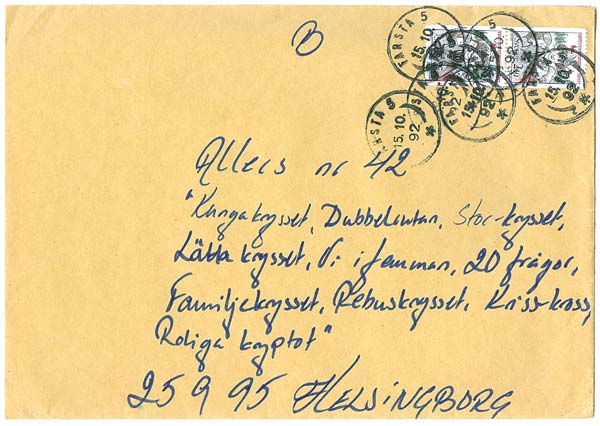 B
FARSTA 5
15.10.
92
FARSTA 5
15.10.
92
FARSTA 5
15.10.
92
Allers nr 42
"Kungakrysset, Dubbelrutan, Stor-krysset,
Lätta krysset, Vi i femman, 20 frågor,
Familjekrysset, Rebuskrysset, Kriss-kross,
Roliga kryptot"
259 95 HELSINGBORG